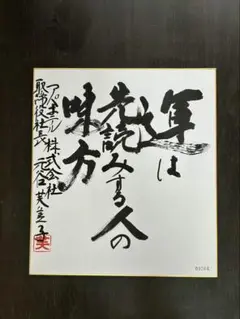 運は
先読みする人の
味方
アパホテル株式会社
取締役社長 元谷芙美子